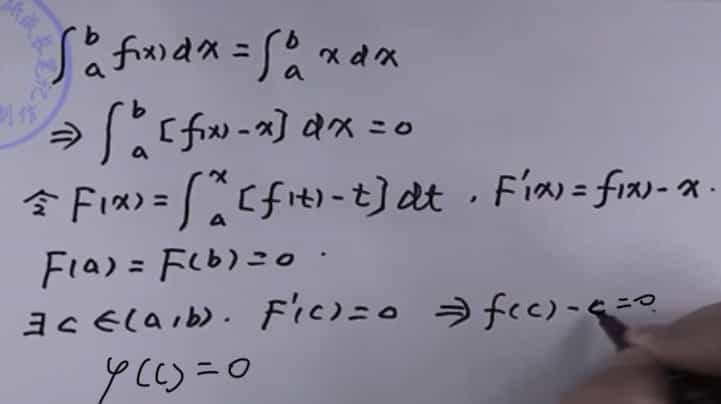 ∫ₐᵇ f(x)dx = ∫ₐᵇ x dx
⇒ ∫ₐᵇ [f(x) - x] dx = 0
令 F(x) = ∫ₐˣ [f(t) - t] dt . F'(x) = f(x) - x .
F(a) = F(b) = 0 .
∃ c ∈ (a, b) . F'(c) = 0 ⇒ f(c) - c = 0 .
φ(c) = 0
制作